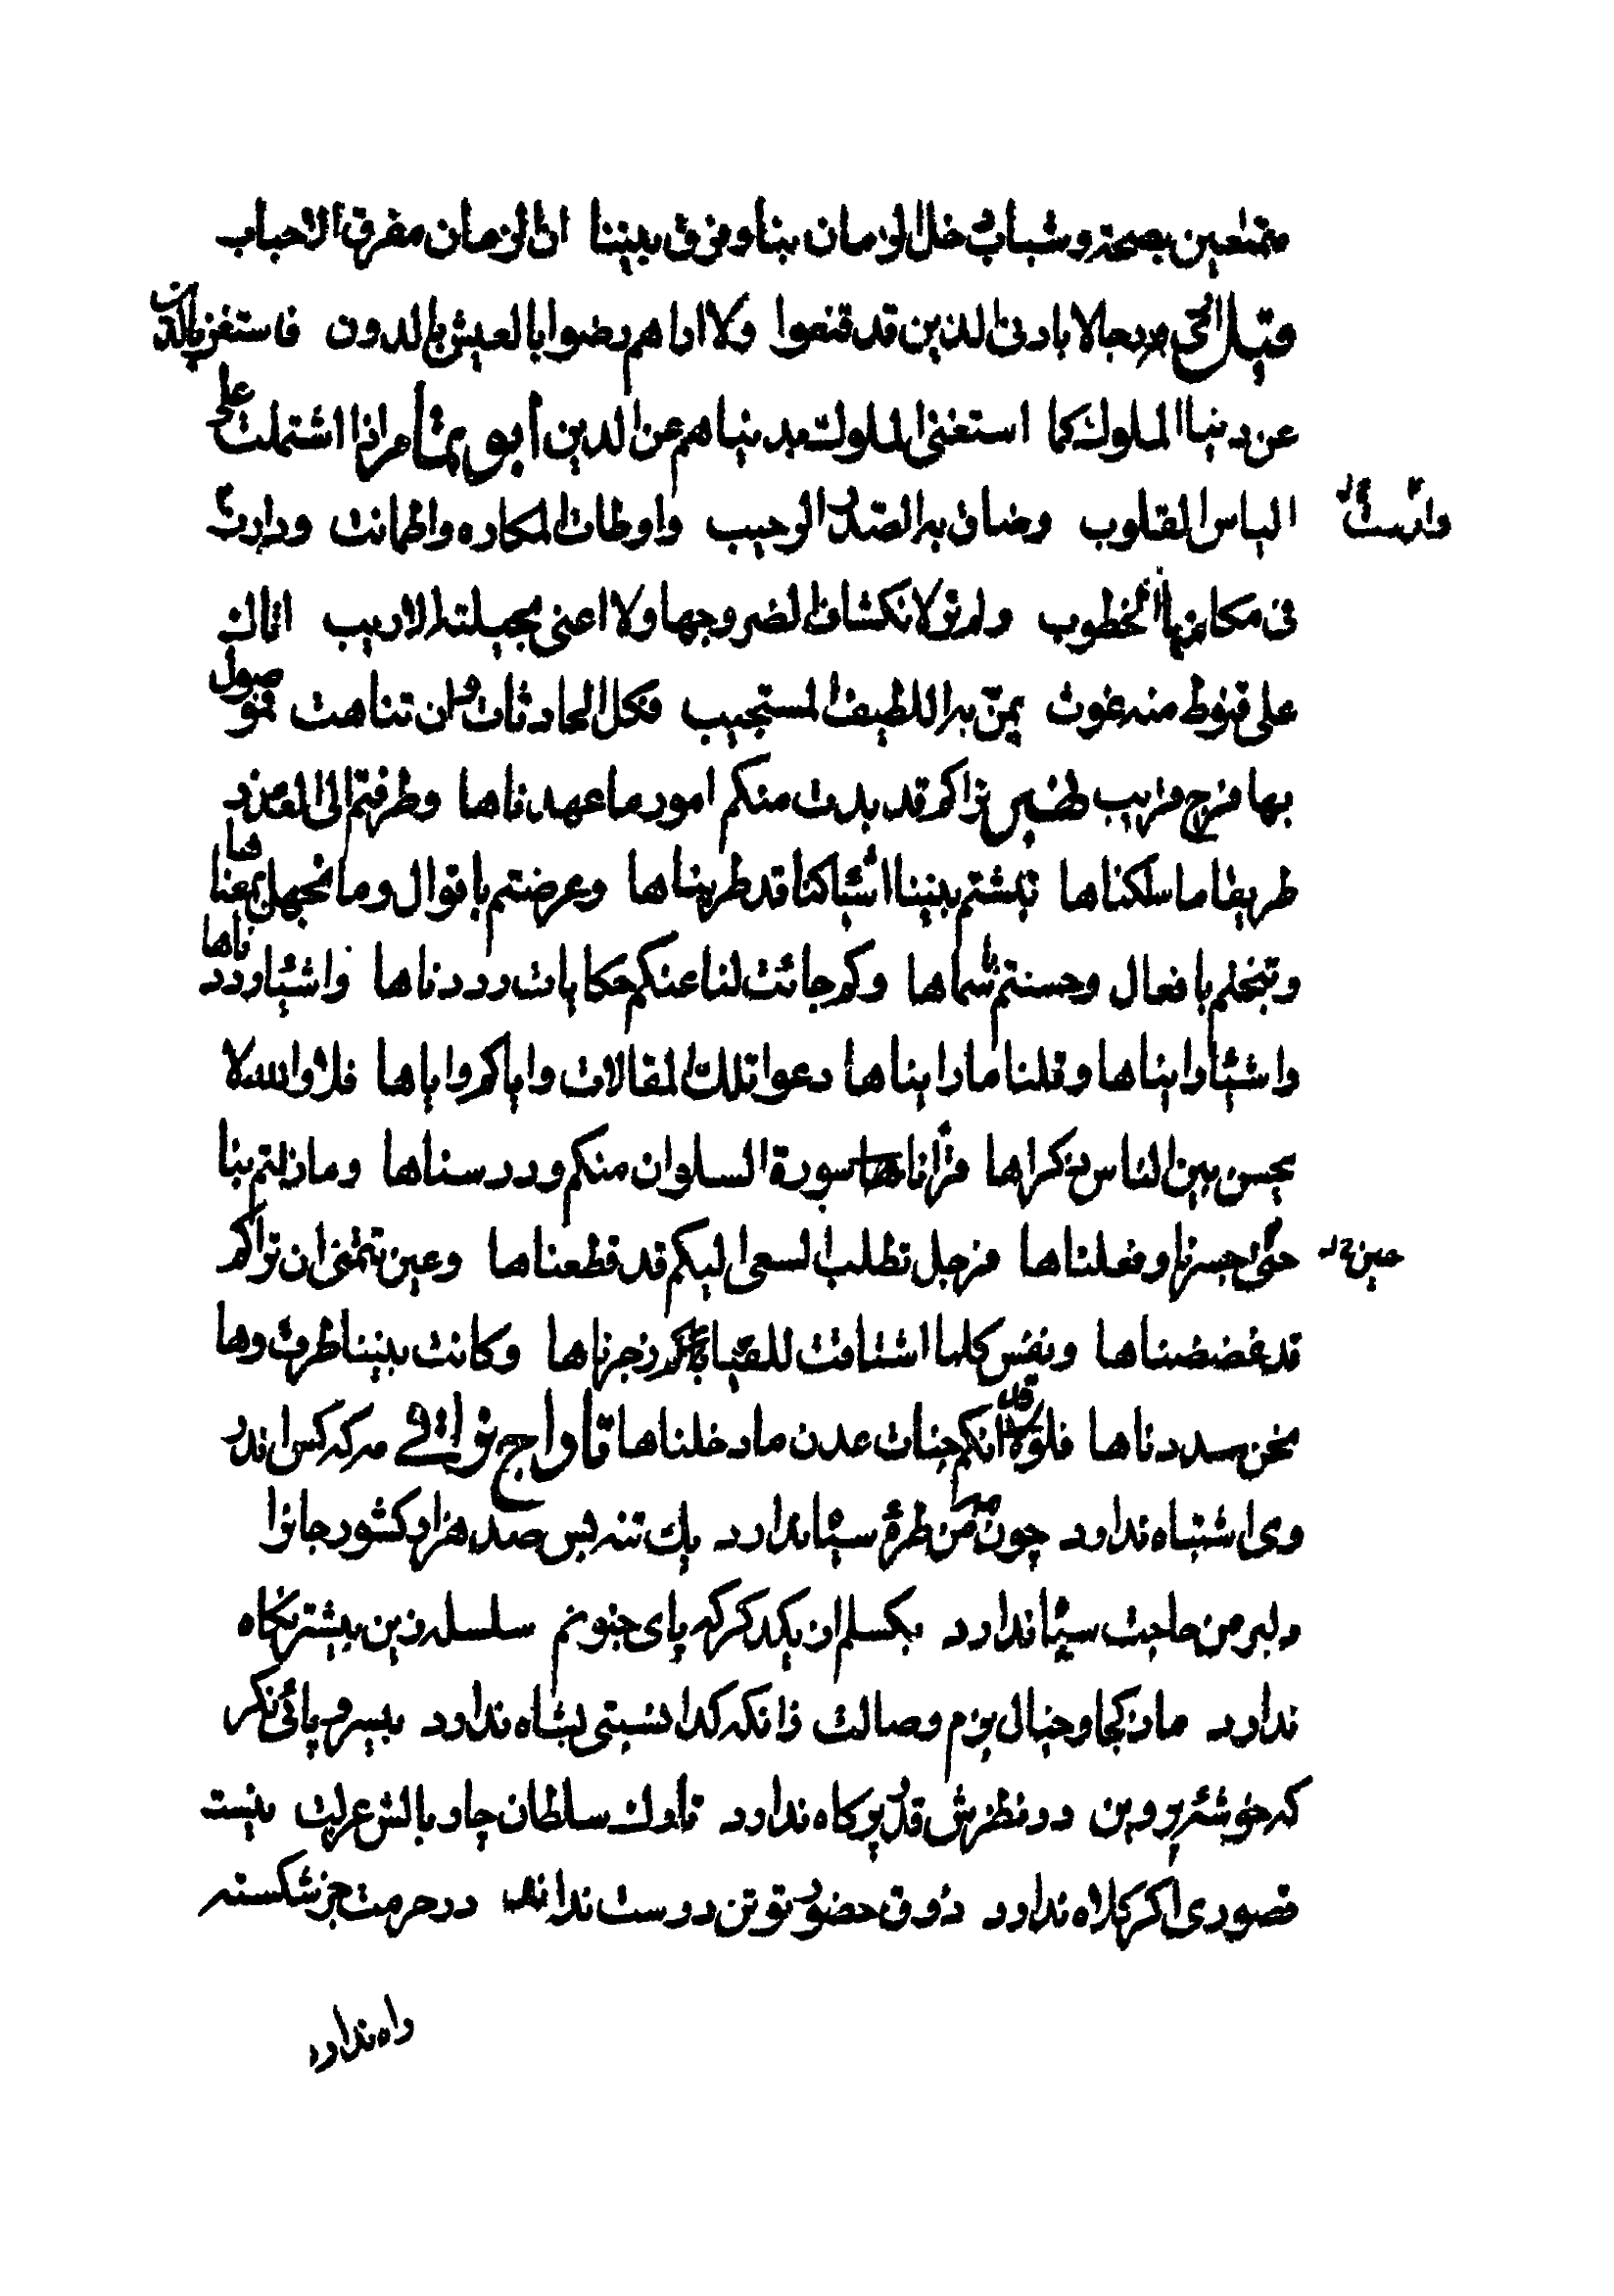 متمتعين بصحة وشباب دخل الزمان بيننا وفرق بيننا ان الزمان مفرق الاحباب
وقيل ارى رجالا بادنى الدين قد قنعوا ولا اراهم رضوا بالعيش بالدون فاستغن بالدين
عن دنيا الملوك كما استغنى الملوك بدنياهم عن الدين ابو تمام اذا اشتملت على
الباس القلوب وضاق به الصدر الرحيب واوطات المكاره واطمانت ودارت
وارست
فى مكانها الخطوب ولم تر لانكشاف الضر وجها ولا اغنى بحيلته الاريب اتاك
على قنوط منه غوث يمن به اللطيف المستجيب فكل الحادثات وان تناهت فموصول
بها فرج قريب لغيره نراكم قد بدت منكم امور ما عهدناها وطرقتم الى الغدر
طريقا ما سلكناها نبشتم بيننا اشيا كنا قد طويناها وعرضتم باقوال وما نجهل معناها
وقبحتم بافعال وحسنتم شماها وكم جائت لنا عنكم حكايات رددناها واشيا وردناها
واشيا رايناها وقلنا ما رايناها دعوا تلك المقالات واياكم واياها فلا والله لا
يحسن بين الناس ذكراها قرانا سورة السلوان منكم ودرسناها وما زلتم بنا
حتى جسرنا وفعلناها فرجل تطلب السعى اليكم قد قطعناها وعين تتمنى ان تراكم
حين
قد غضضناها ونفس كلما اشتاقت للقياكم زجرناها وكانت بيننا طرق وها
نحن سددناها فلو انكم جنات عدن ما دخلناها تاراج نراقى مركه كس اندر
وى اشتباه ندارد چون من طره سياه ندارد يك تنه پس صد هزار كشور جانرا
دلبر من حاجت سپاه ندارد بكسلم ازيكدكر كه پاى جنونم سلسله زين بيشتر نكاه
ندارد ما زكجا و خيال بزم وصالت زانكه كدا نسبتى بشاه ندارد بيسر و پائى نكر
كه خوشه پروين در نظرش قدر پر كاه ندارد تارك سلطان چار بالش عزلت نيست
قصورى اكر كلاه ندارد ذوق حضور تو تن درست نداند در حرمت جز شكسته
راه ندارد